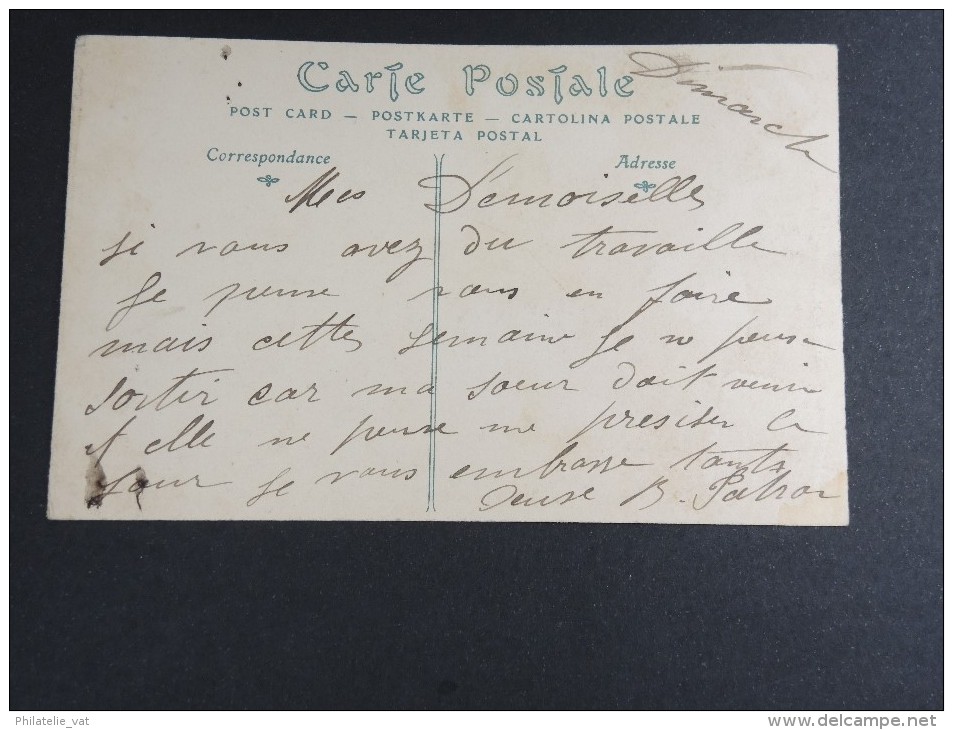 Carte Postale
Dimanche
POST CARD — POSTKARTE — CARTOLINA POSTALE
TARJETA POSTAL
Correspondance
Adresse
Mes Demoiselles
si vous avez du travaille
Je peux vous en faire
mais cettes semaine Je ne peux
sortir car ma soeur doit venir
et elle ne peux me presiser le
Jour Je vous embrasse toutes
B.
Philatelie_vat
www.delcampe.net